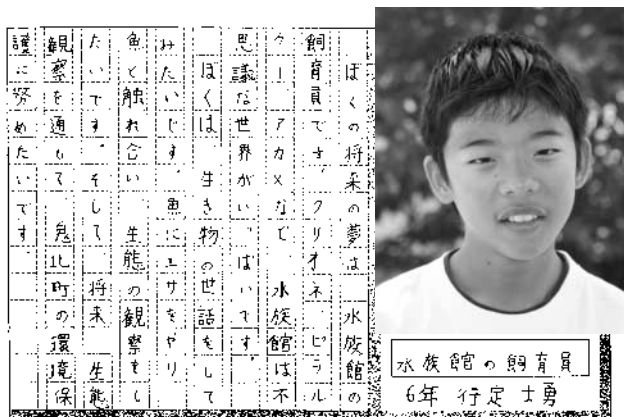 ぼくの将来の夢は 水族館の
飼育員です。クリオネ、ピラル
クー、アカメなど 水族館は不
思議な世界がいっぱいです。
ぼくは、生き物の世話をして
みたいです。魚にエサをやり、
魚と触れ合い、生態の観察をし
たいです。そして、将来、生態
観察を通して、鬼北町の環境保
護に努めたいです
水族館の飼育員
6年 行定 士勇